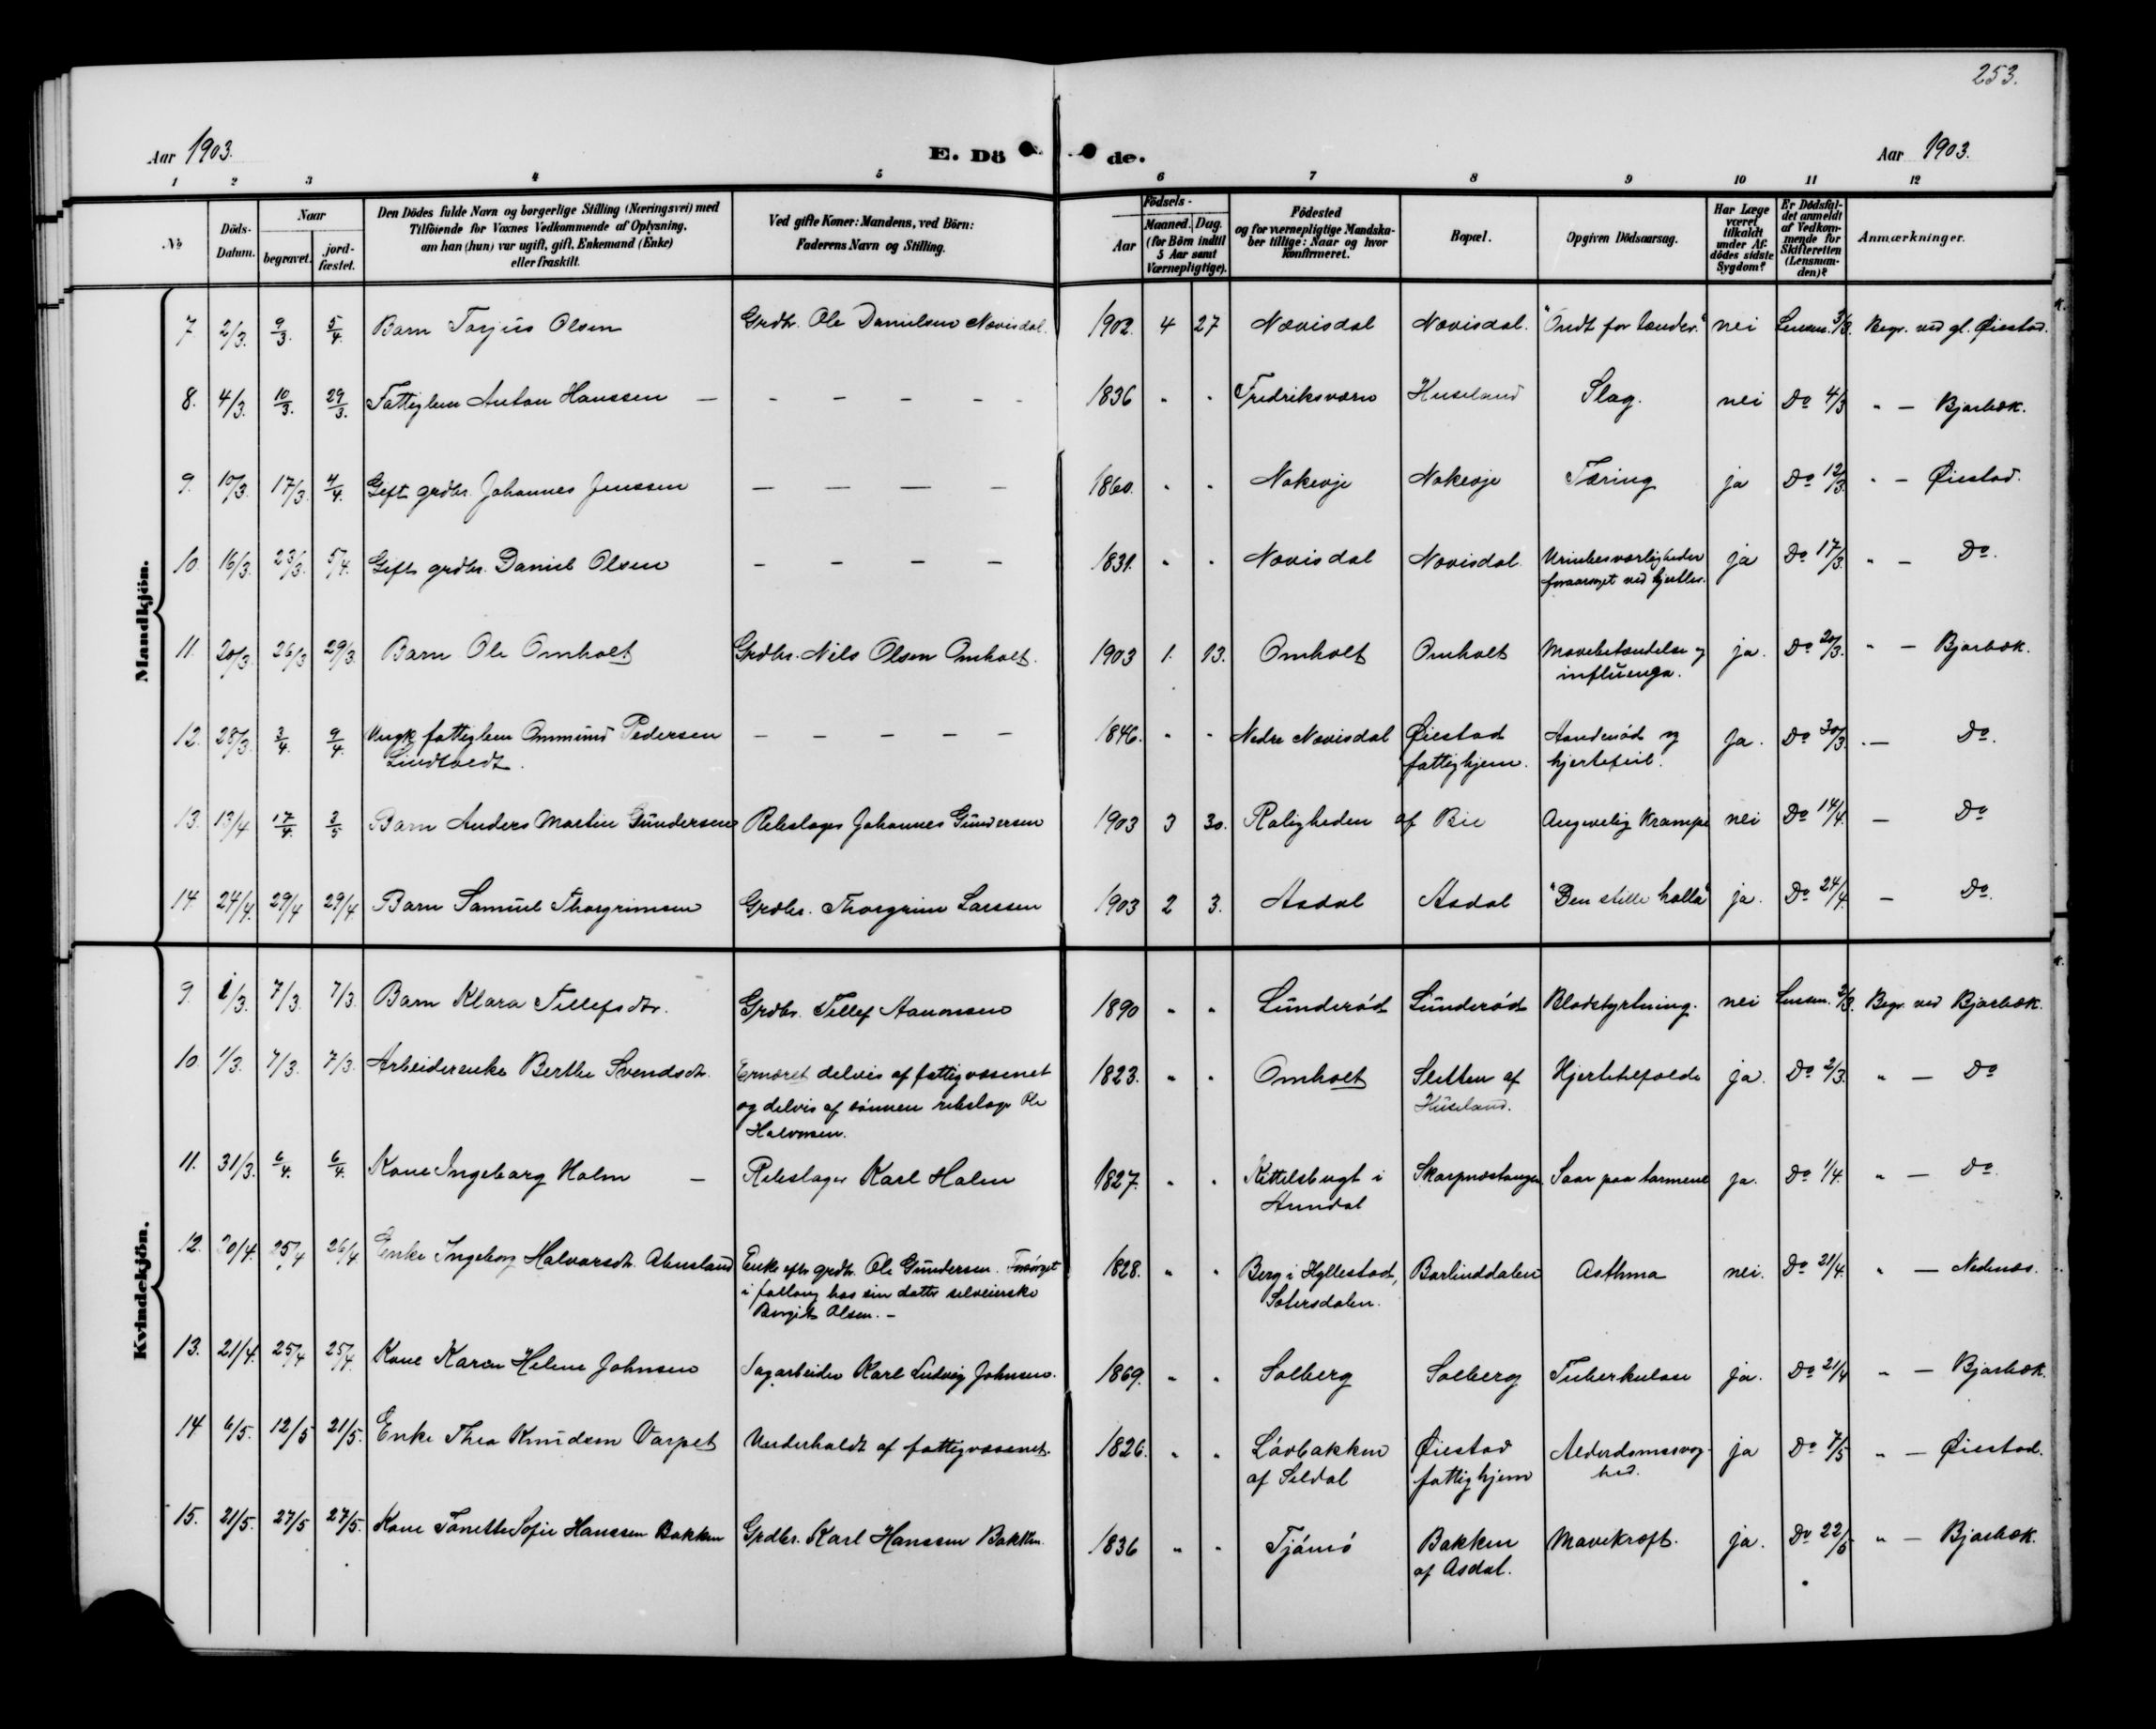 253.
Aar 1903.
E. Dö de.
Aar 1903.
1 2 3 4 5 6 7 8 9 10 11 12
№
Döds-Datum.
Naar
begravet.
jord-fæstet.
Den Dödes fulde Navn og borgerlige Stilling (Næringsvei) med
Tilföiende for Voxnes Vedkommende af Oplysning,
om han (hun) var ugift, gift, Enkemand (Enke)
eller fraskilt.
Ved gifte Koner: Mandens, ved Börn:
Faderens Navn og Stilling.
Födsels-
Aar
Maaned. Dag.
(for Börn indtil
5 Aar samt
Værnepligtige).
Födested
og for værnepligtige Mandska-
ber tillige: Naar og hvor
konfirmeret.
Bopæl.
Opgiven Dödsaarsag.
Har Læge
været
tilkaldt
under Af-
dödes sidste
Sygdom?
Er Dödsfal-
det anmeldt
af Vedkom-
mende for
Skifteretten
(Lensman-
den)?
Anmærkninger.
Mandkjön.
7. 2/3. 9/3. 5/4. Barn Torjus Olsen Grdbr. Ole Danielsen Nævisdal. 1902. 4 27 Nævisdal Nævisdal. "Ondt for tænder." nei Lensm. 3/3. Begr. ved gl. Øiestad.
8. 4/3. 10/3. 29/3. Fattiglem Anton Hanssen — - — — - - 1836 " " Fredriksværn Huseland Slag. nei Do 4/3 " — Bjorbæk.
9. 10/3. 17/3. 4/4. Gift grdbr. Johannes Jenssen — — — — 1860. " " Nakevje Nakevje Tæring ja Do 12/3. " — Øiestad.
10. 16/3. 23/3. 5/4. Gift grdbr. Daniel Olsen — — — — 1831. " " Nævisdal Nævisdal. Urinbesværligheder
foraarsaget ved kjertler. ja Do 17/3. " — Do.
11. 20/3. 26/3 29/3. Barn Ole Omholt Grdbr. Nils Olsen Omholt. 1903 1. 13. Omholt Omholt Mavebetændelse og
influenza. ja. Do 20/3. " — Bjorbæk.
12. 28/3. 3/4. 9/4. Ungk. fattiglem Ommund Pedersen
Lindtvedt. — — — — — 1846. " " Nedre Nævisdal Øiestad
fattighjem. Aandenød og
hjertefeil. Ja. Do 30/3. " — Do.
13. 13/4 17/4. 3/5 Barn Anders Martin Gundersen Rebslager Johannes Gundersen 1903 3 30. Roligheden af Bie Angivelig Krampe nei Do 14/4. — Do
14. 24/4. 29/4 29/4 Barn Samuel Thorgrimsen Grdbr. Thorgrim Larssen 1903 2 3. Asdal Asdal "Den stille halla" ja. Do 24/4. — Do.
Kvindekjön.
9. 1/3. 7/3. 7/3. Barn Klara Tellefsdtr. Grdbr. Tellef Aanonsen 1890 " " Lunderød Lunderød Blodstyrtning. nei Lensm. 2/3. Begr. ved Bjorbæk.
10. 1/3. 7/3. 7/3. Arbeiderenke Berthe Svendsdtr. Ernæret delvis af fattigvæsenet
og delvis af sønnen rebslager Ole
Halvorsen. 1823. " " Omholt Sletten af
Huseland. Hjertetilfælde ja. Do 2/3. " — Do
11. 31/3. 6/4. 6/4. Kone Ingeborg Holm — Rebslager Karl Holm 1827. " " Kittelsbugt i
Arendal Skarpnestangen Saar paa tarmene ja. Do 1/4. " — Do.
12. 20/4. 25/4 26/4 Enke Ingeborg Halvorsdtr. Enke efter grdbr. Ole Gundersen. Forsørget
i hos sin datter selveierske
Birgit Olsen. — 1828. " " Berg i Hyllestad,
Sætersdalen. Barlinddalen Asthma nei. Do 21/4. " — Nedenæs.
13. 21/4. 25/4 25/4. Kone Karen Helene Johnsen Sagarbeider Karl Ludvig Johnsen. 1869. " " Solberg Solberg Tuberkulose ja. Do 21/4 " — Bjorbæk.
14 6/5. 12/5 21/5. Enke Thea Knudsen Varpet Underholdt af fattigvæsenet. 1826. " " Løvbakken
af Seldal Øiestad
fattighjem Alderdomssvag-
hed. ja Do 7/5 " — Øiestad.
15. 21/5. 27/5 27/5. Kone Tonette Sofie Hanssen Bakken Grdbr. Karl Hanssen Bakken. 1836 " " Tjømø Bakken
af Asdal. Mavekræft. ja. Do 22/5 " — Bjorbæk.